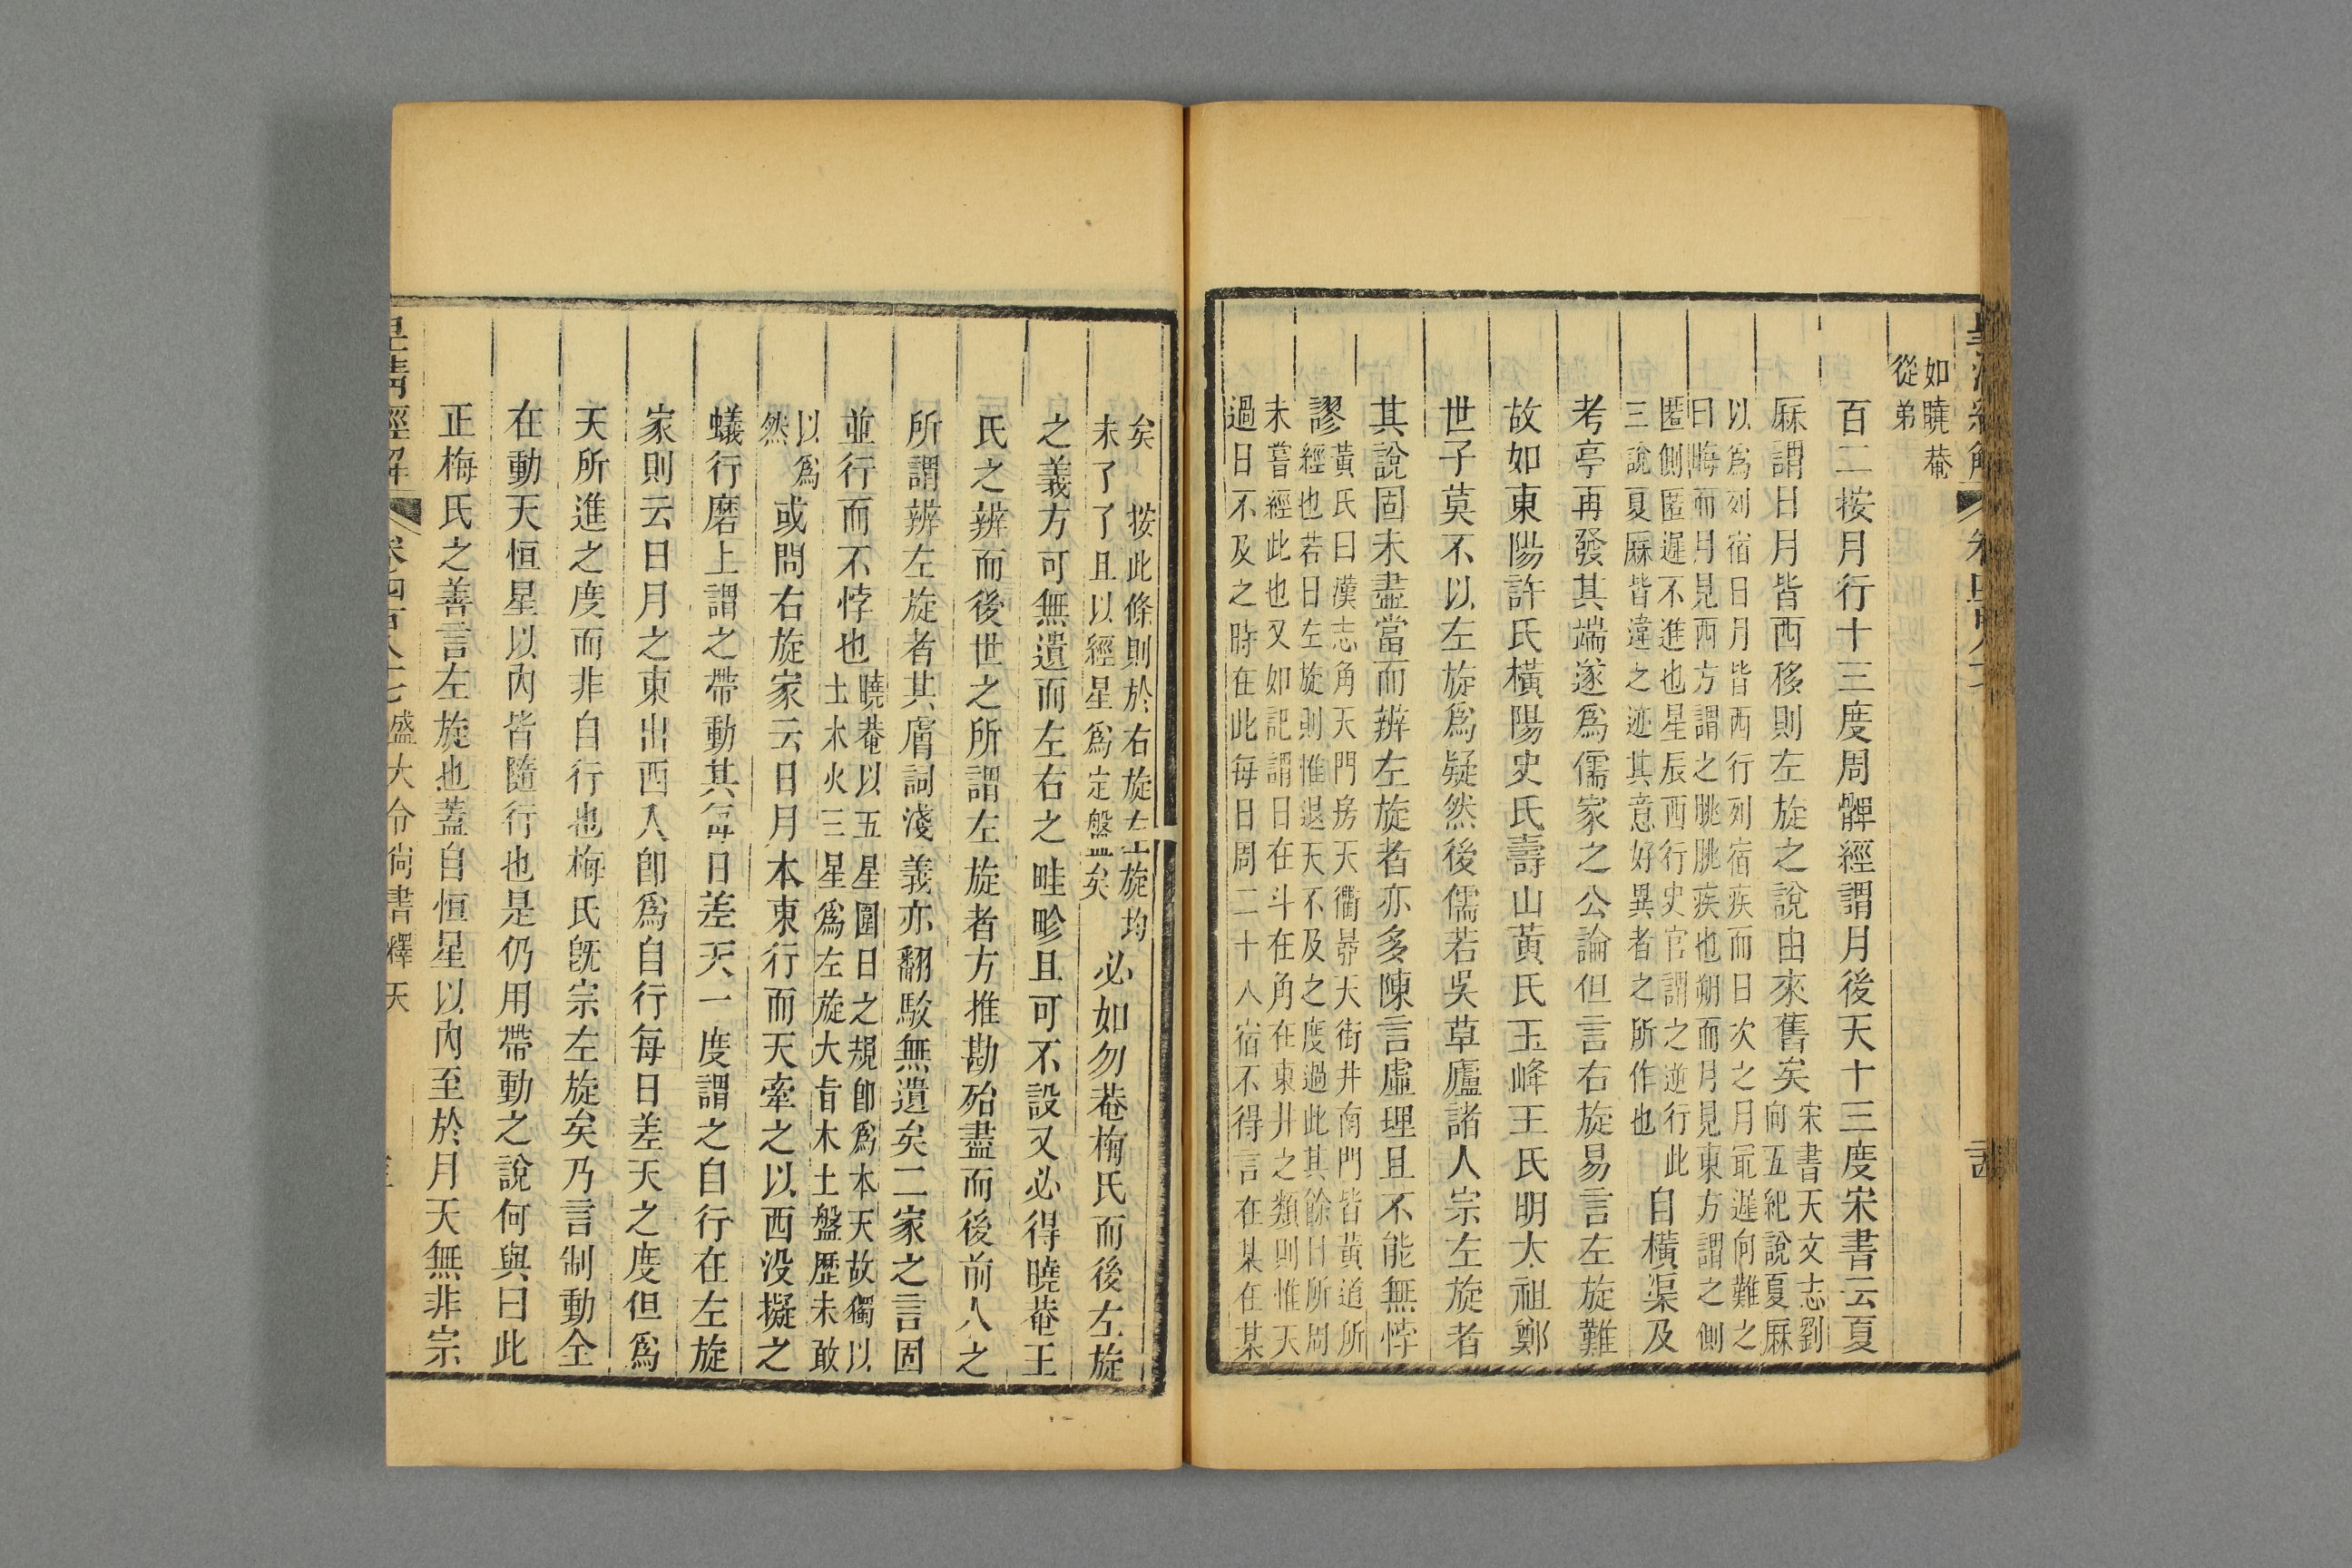 如曉菴
從弟
百二按月行十三度周髀經謂月後天十三度宋書云夏
厤謂日月皆西移則左旋之說由來舊矣
宋書天文志劉
向五紀說夏厤
以爲列宿日月皆西行列宿疾而日次之月冣遲何難之
曰晦而月見西方謂之朓朓疾也朔而月見東方謂之側
匿側匿遲不進也星辰西行史官謂之逆行此
三說夏厤皆違之迹其意好異者之所作也
自橫渠及
考亭再發其端遂爲儒家之公論但言右旋易言左旋難
故如東陽許氏橫陽史氏壽山黃氏玉峰王氏明太祖鄭
世子莫不以左旋爲疑然後儒若吳草廬諸人宗左旋者
其說固未盡當而辨左旋者亦多陳言虛理且不能無悖
謬
黃氏曰漢志角天門房天衢昴天街井南門皆黃道所
經也若日左旋則惟退天不及之度過此其餘日所周
未嘗經此也又如記謂日在斗在角在東井之類則惟天
過日不及之時在此每日周二十八宿不得言在某在某
矣 按此條則於右旋左旋均
未了了且以經星爲定盤矣
必如勿菴梅氏而後左旋
之義方可無遺而左右之畦畛且可不設又必得曉菴王
氏之辨而後世之所謂左旋者方推勘殆盡而後前人之
所謂辨左旋者其膚詞淺義亦翻駁無遺矣二家之言固
並行而不悖也
曉菴以五星圍日之規卽爲本天故獨以
土木火三星爲左旋大旨木土盤歷未敢
以爲
然
或問右旋家云日月本東行而天牽之以西没擬之
蟻行磨上謂之帶動其每日差天一度謂之自行在左旋
家則云日月之東出西入卽爲自行每日差天之度但爲
天所進之度而非自行也梅氏旣宗左旋矣乃言制動全
在動天恒星以內皆隨行也是仍用帶動之說何與曰此
正梅氏之善言左旋也蓋自恒星以內至於月天無非宗
皇清經解 卷四百八十七 盛大令尚書釋天